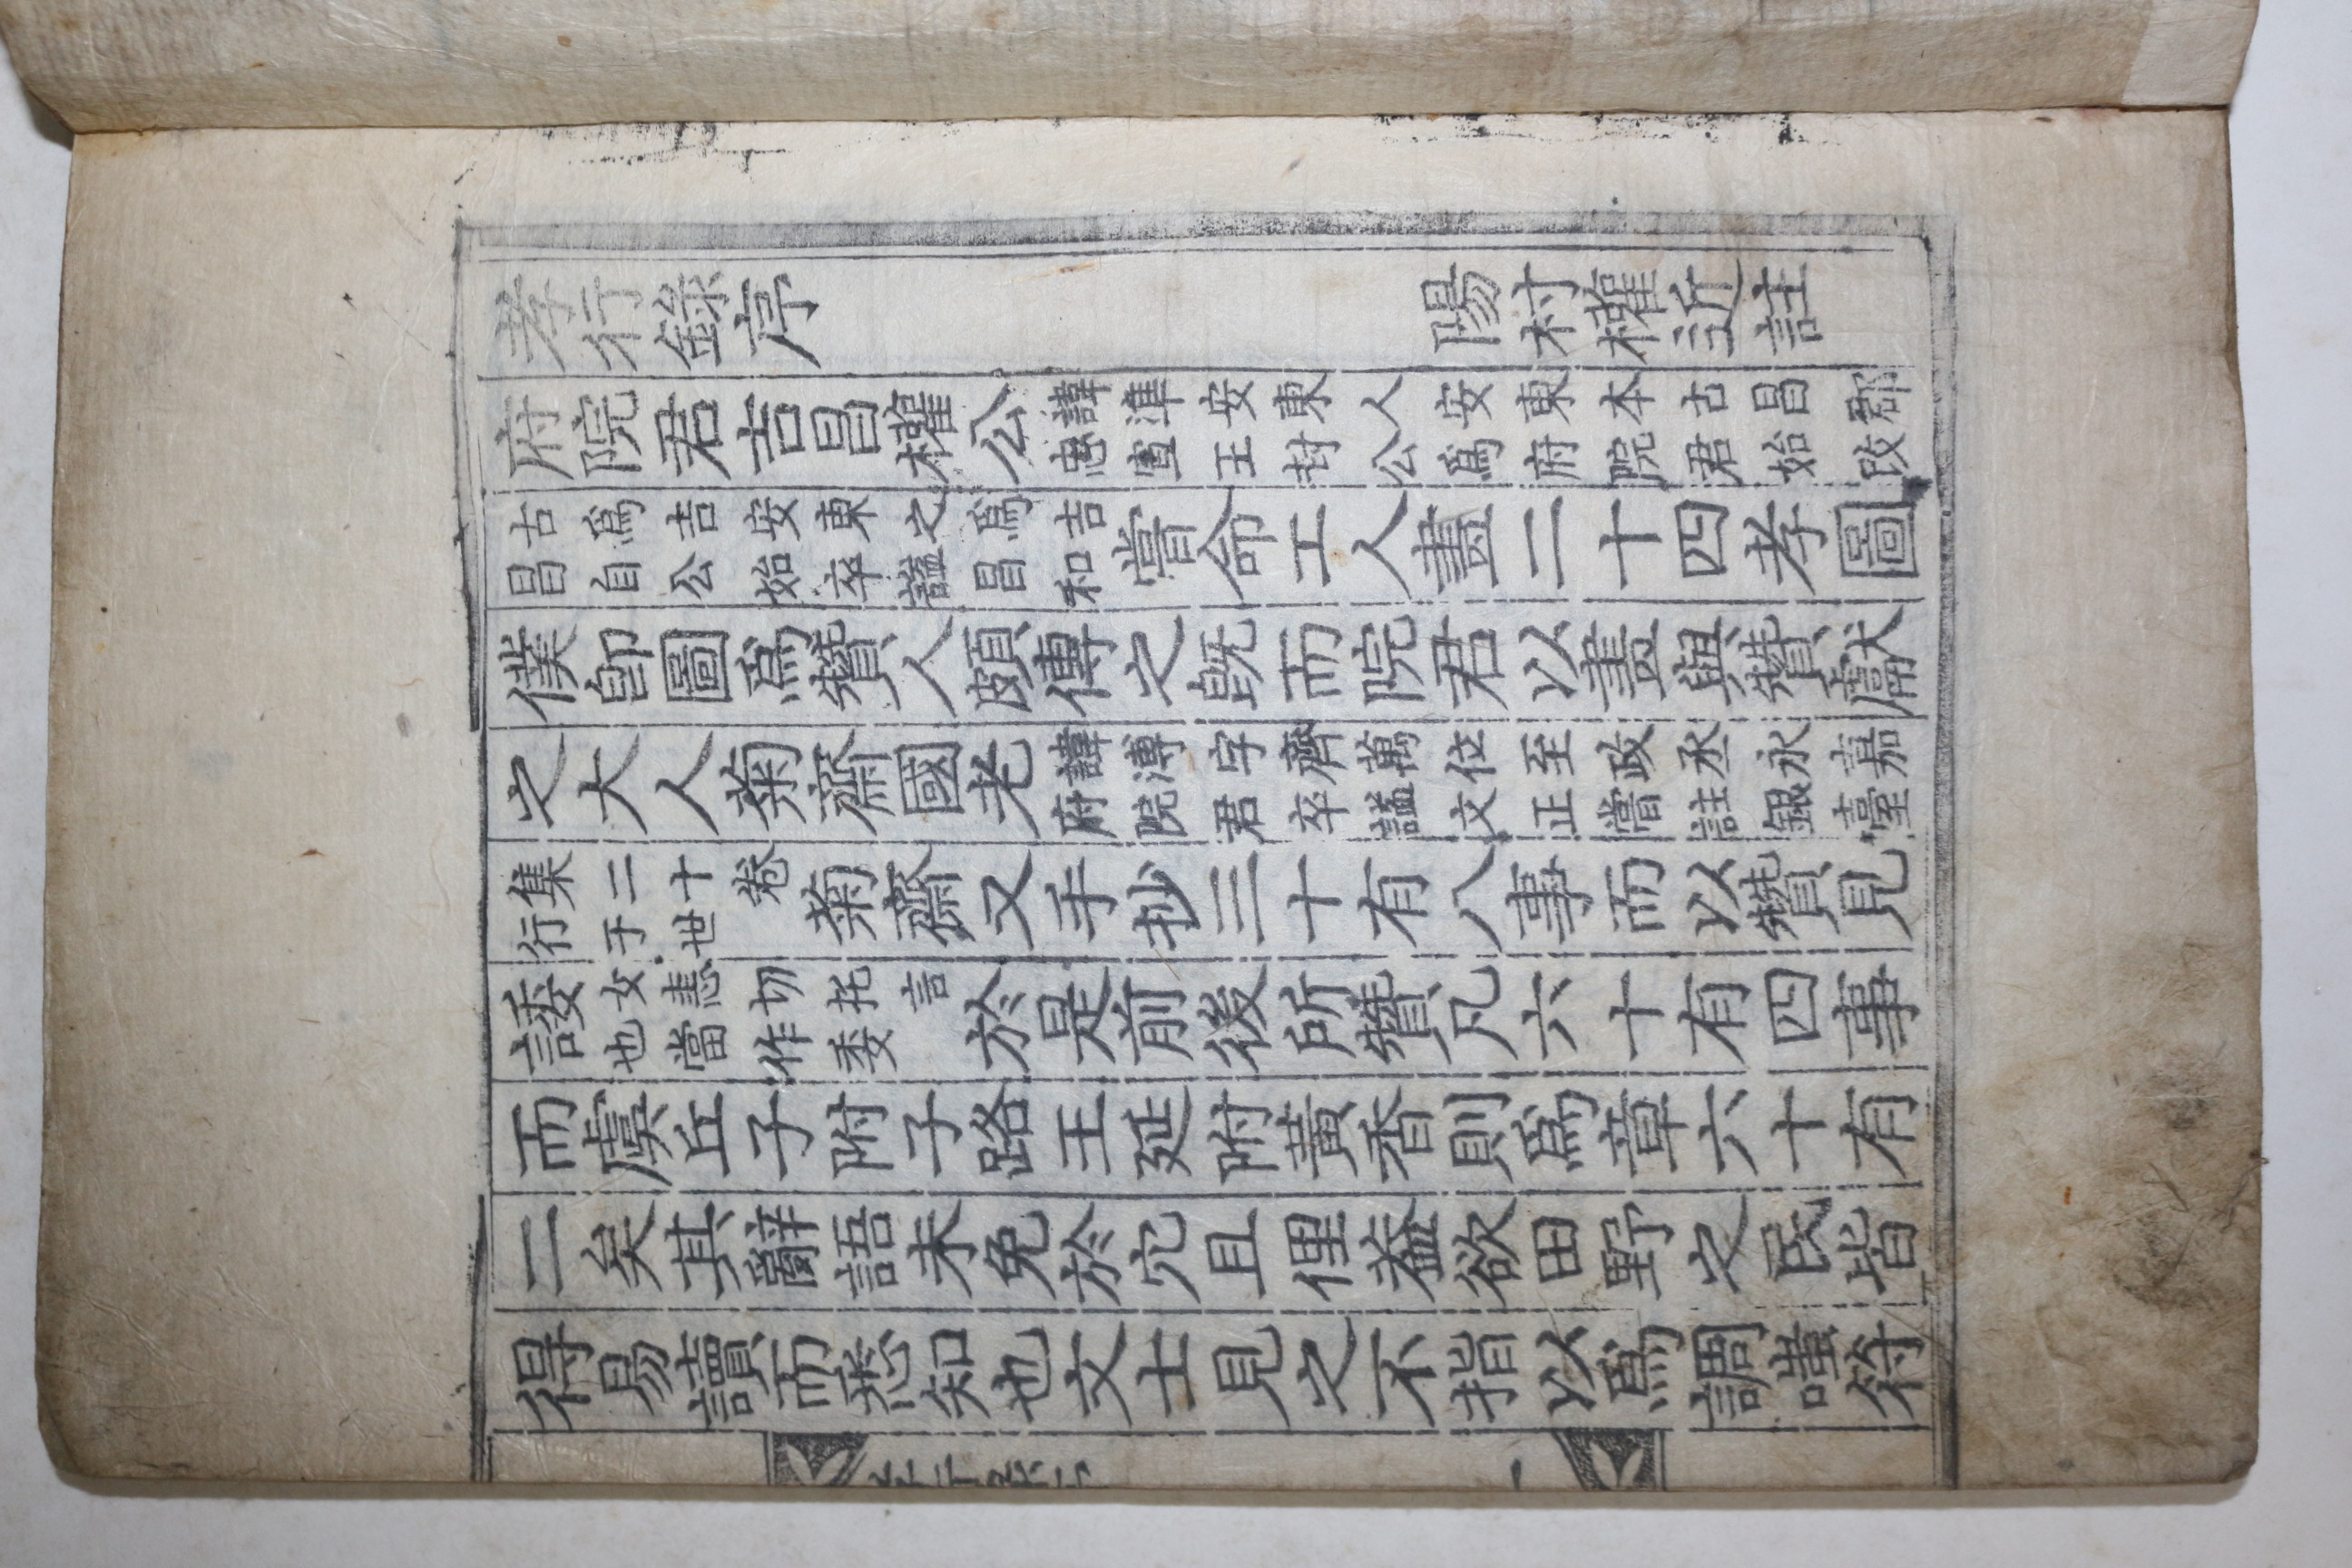 孝行錄序 陽村權近註
府院君吉昌權公諱準安東人安東本古昌郡忠宣王封公爲府院君始改
古爲吉安東之爲吉昌自公始卒謚昌和嘗命工人畫二十四孝圖
僕卽圖爲贊人頗傳之旣而院君以畫與贊獻
之大人菊齋國老諱溥字齊萬位至政丞永嘉府院君卒謚文正嘗註銀臺
集二十卷行于世菊齋又手抄三十有八事而以贊見
諉女恚切托言也當作委於是前後所贊凡六十有四事
而虞丘子附子路王延附黃香則爲章六十有
二矣其辭語未免於冗且俚蓋欲田野之民皆
得易讀而悉知也文士見之不指以爲調嗤符